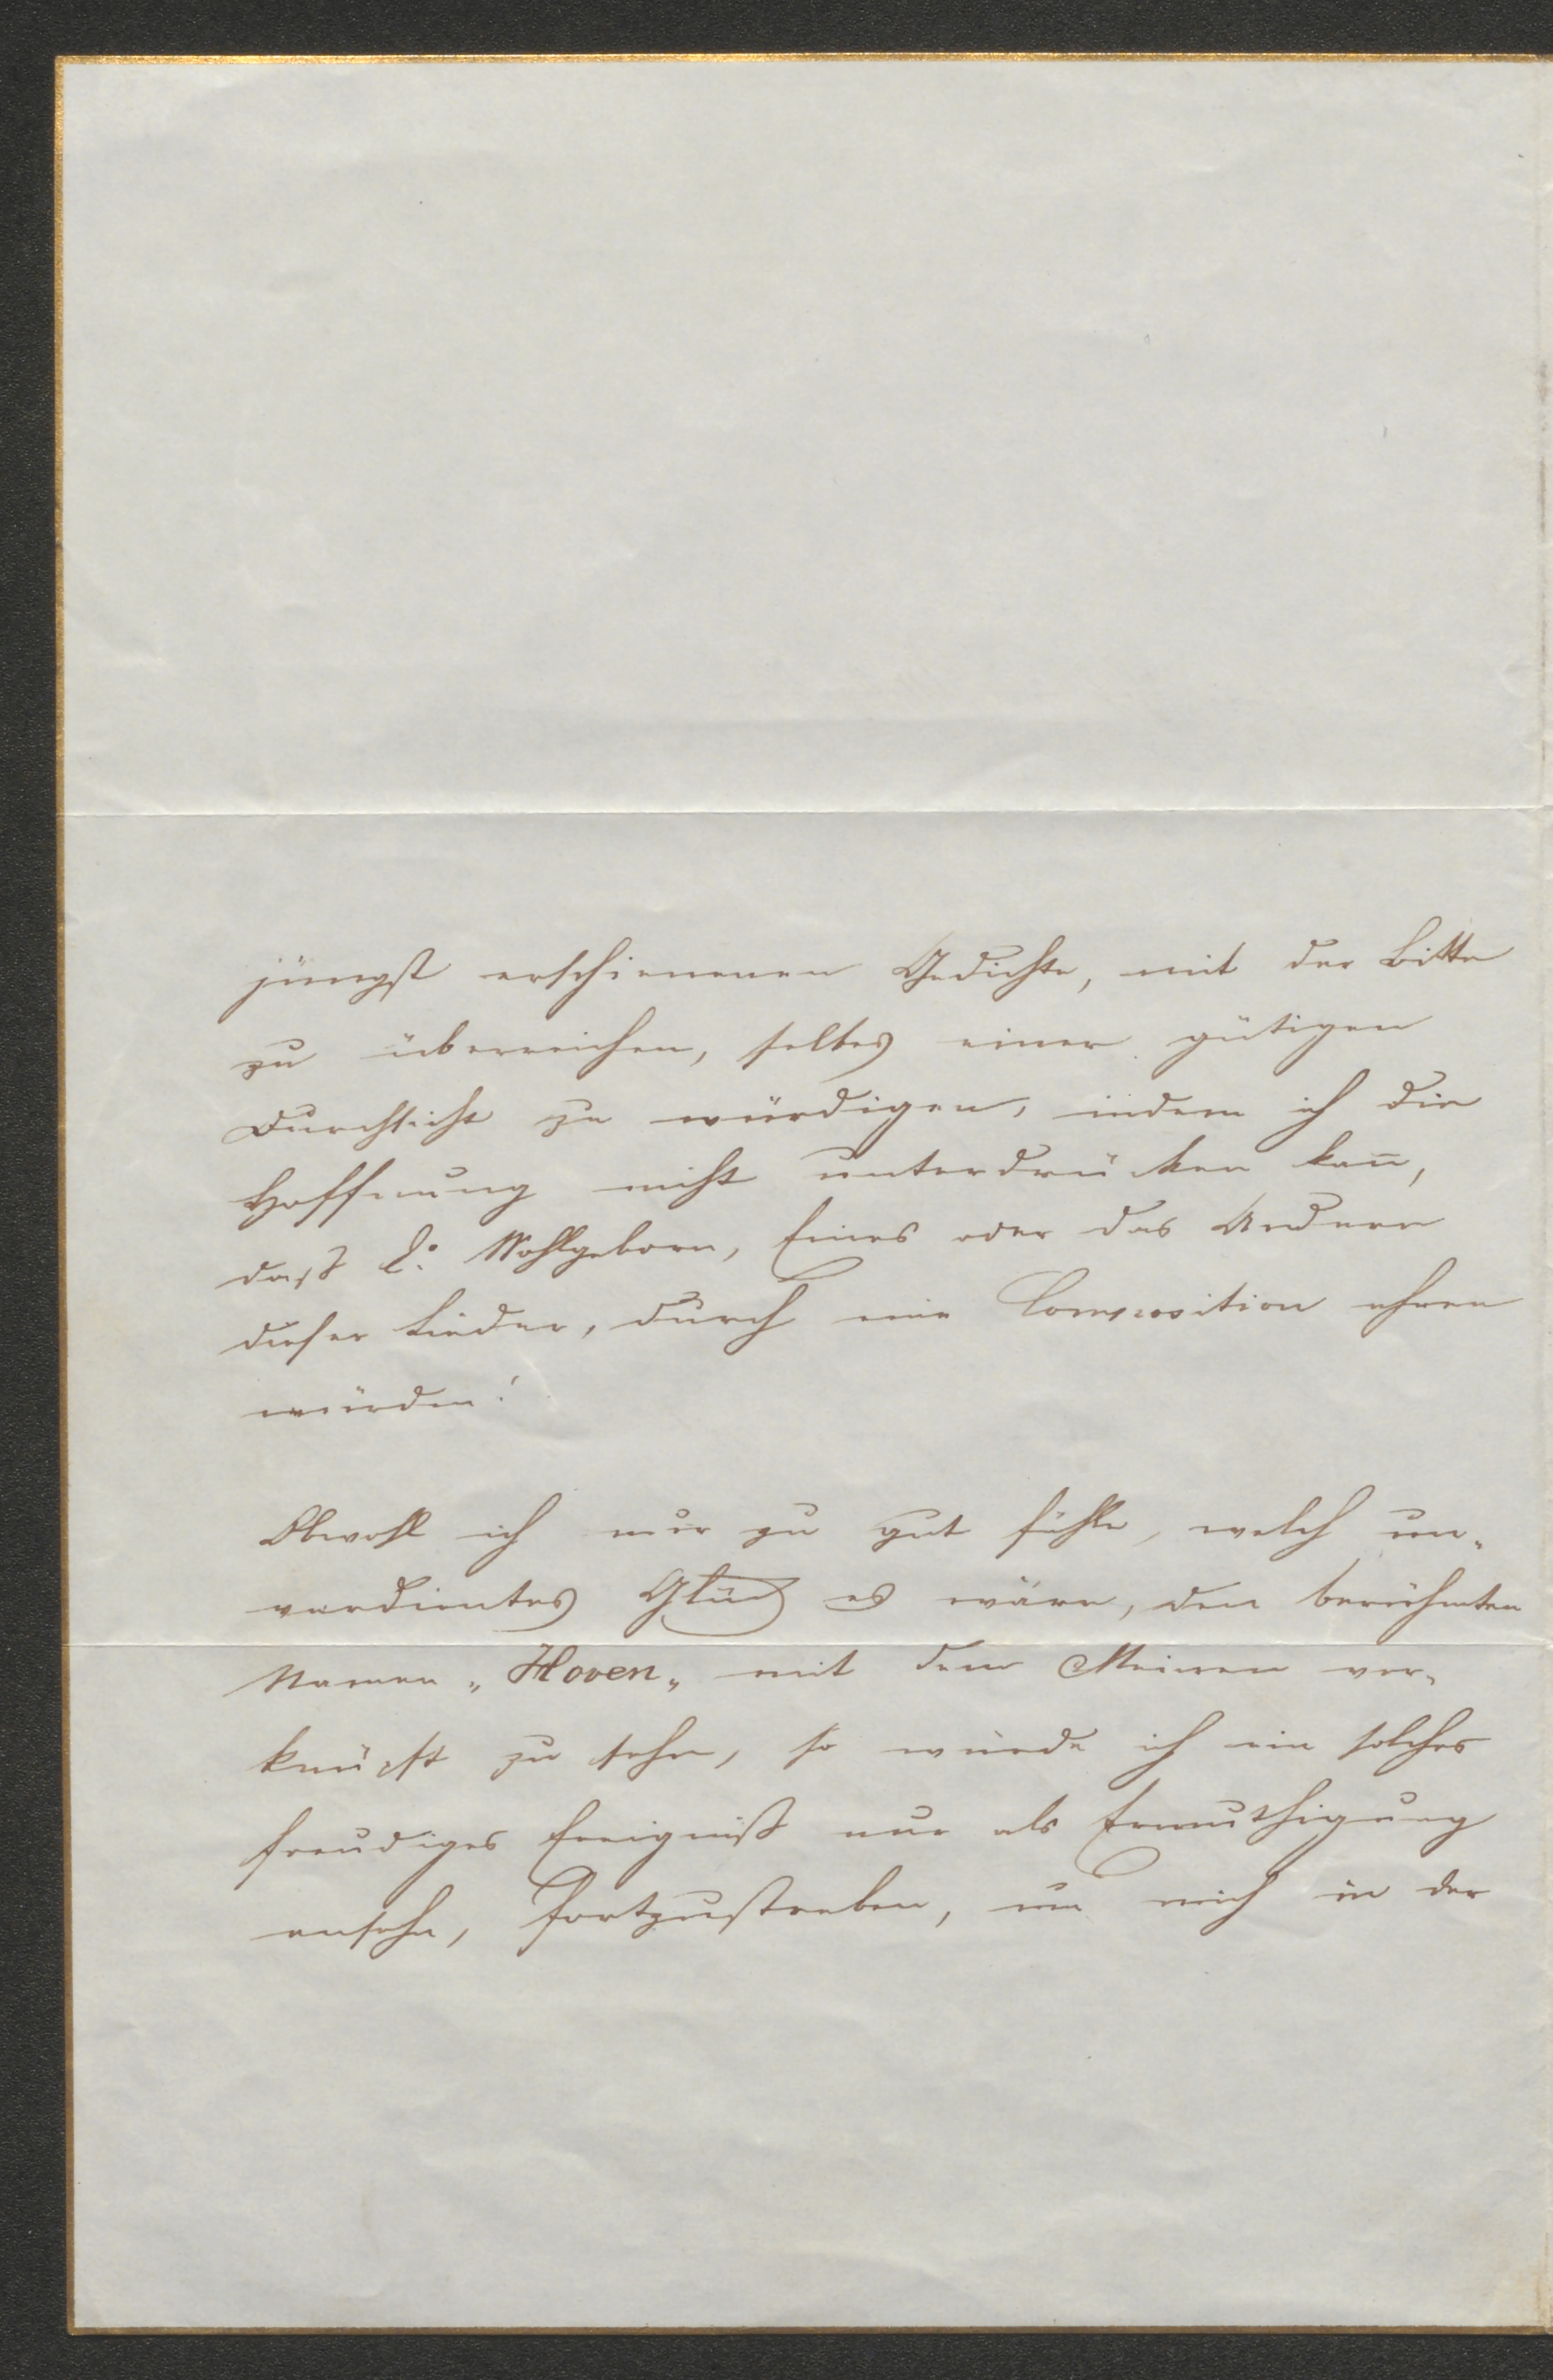 jüngst erschienenen Gedichte, mit der Bitte
zu überreichen, selbes einer gütigen
Durchsicht zu würdigen, indem ich die
Hoffnung nicht unterdrücken kan̄,
daß E: Wohlgeborn, Eines oder das Andere
dieser Lieder, durch eine Composition ehren
würden!
Obwohl ich nur zu gut fühle, welch un„
verdientes Glück es wäre, den berühmten
Namen „Hoven„ mit dem Meinen ver„
knüpft zu sehn, so würde ich ein solches
freudiges Ereigniß nur als Ermuthigung
ansehn, fortzustreben, um mich in der